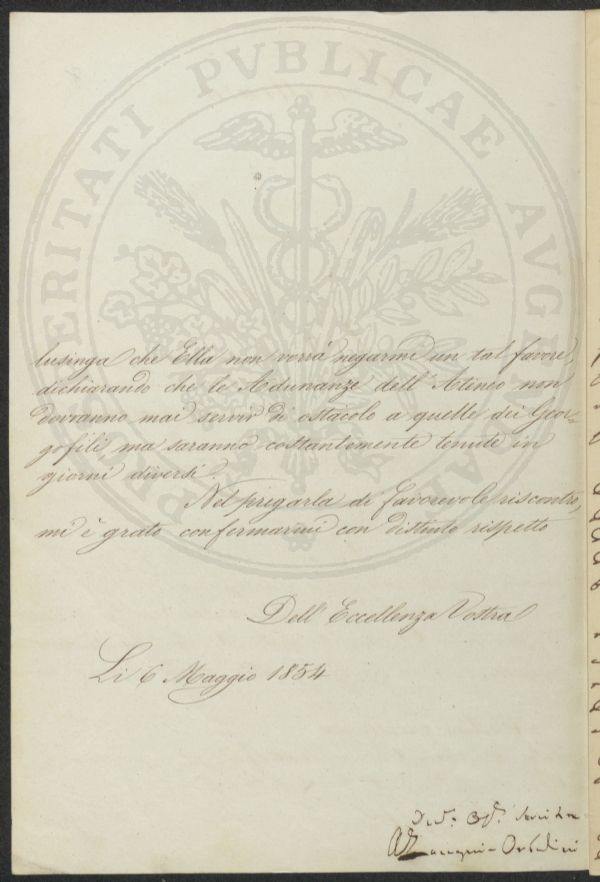 PROSPERITATI PVBLICAE AVGENDAE
lusinga che Ella non vorrà negarmi un tal favore,
dichiarando che le Adunanze dell' Ateneo non
dovranno mai servir di ostacolo a quelle dei Geor-
gofili, ma saranno costantemente tenute in
giorni diversi.
Nel pregarla di favorevole riscontro,
mi è grato confermarmi con distinto rispetto
Dell' Eccellenza Vostra
Li 6 Maggio 1854